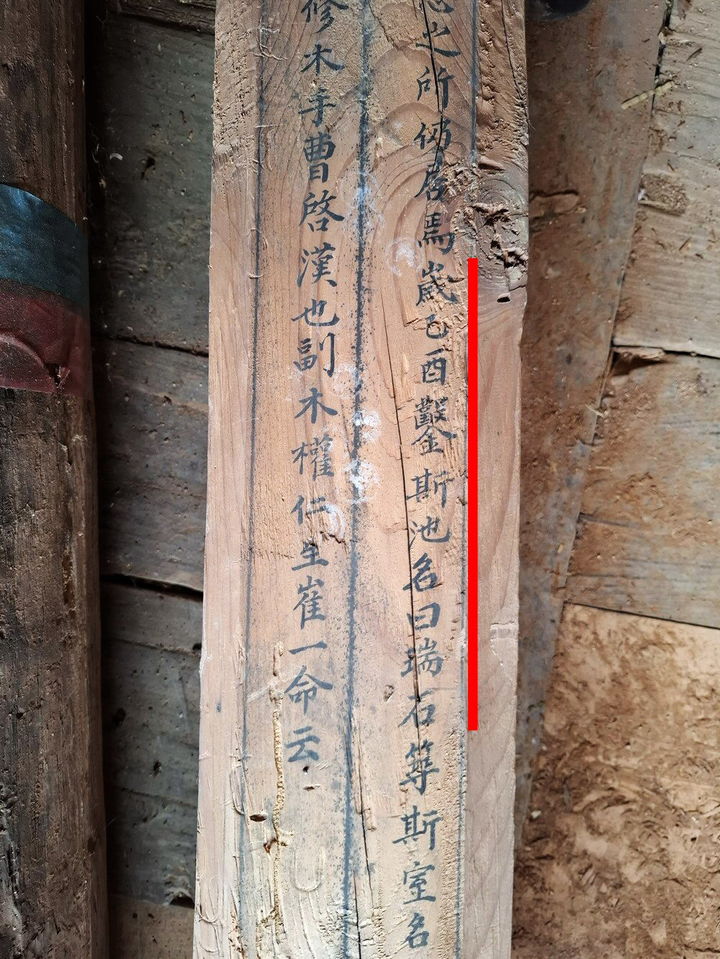 之所仍居焉歲己酉鑿斯池名曰瑞石築斯室名
修木手曹啓漢也副木權仁圭崔一命云